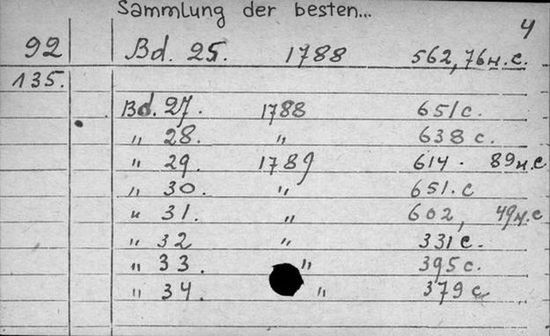 Sammlung der besten...
4
92 Bd. 25. 1788 562, 76 н. с.
135.
Bd. 27. 1788 651 с.
" 28. " 638 с.
" 29. 1789 614. 89 н. с
" 30. " 651. с
" 31. " 602, 49 н. с
" 32 " 331 с.
" 33. " 395 с.
" 34. " 379 с